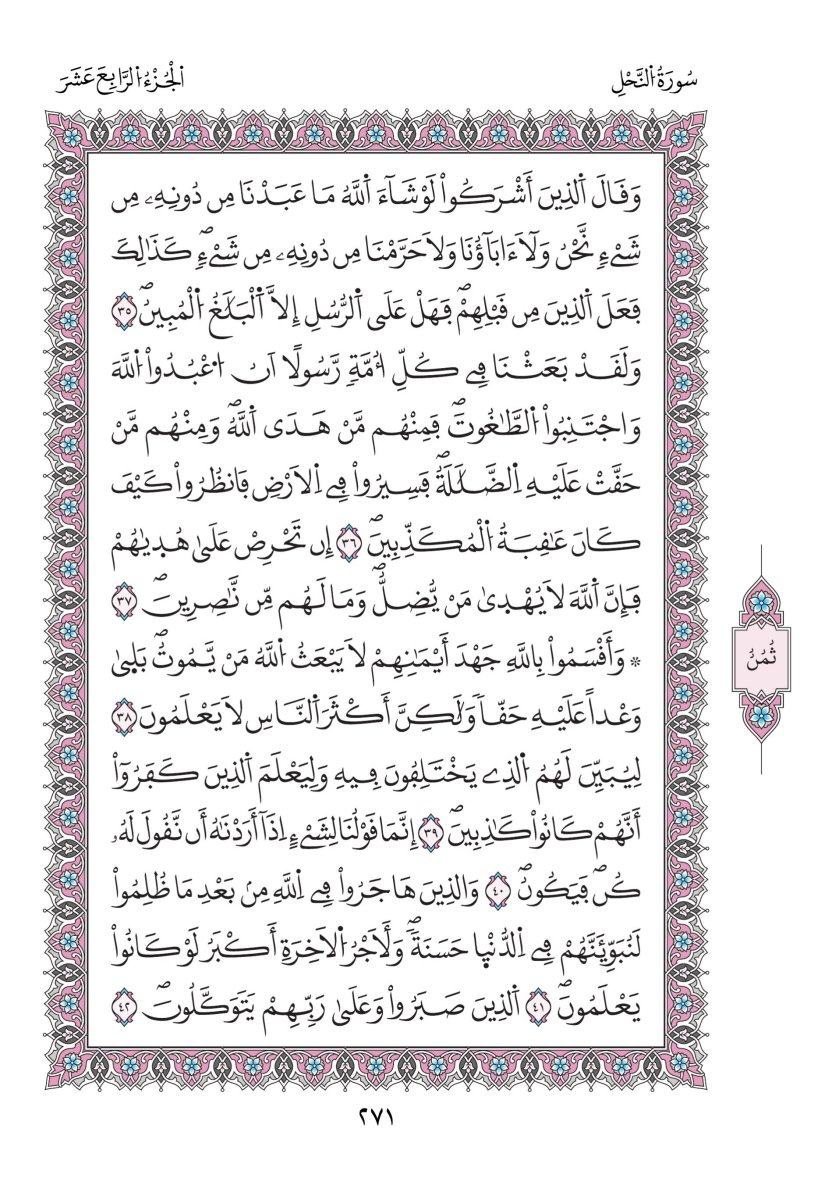 سُورَةُ اُلنَّحْلِ
اُلْجُزْءُ اُلرَّابِعَ عَشَرَ
وَقَالَ اَلذِينَ أَشْرَكُواْ لَوْ شَآءَ اَللَّهُ مَا عَبَدْنَا مِن دُونِهِۦ مِن
شَےْءٖ نَّحْنُ وَلَآ ءَابَآؤُنَا وَلَا حَرَّمْنَا مِن دُونِهِۦ مِن شَےْءٖۖ كَذَٰلِكَ
فَعَلَ اَلذِينَ مِن قَبْلِهِمْۖ فَهَلْ عَلَي اَلرُّسُلِ إِلَّا اَلْبَلَٰغُ اُلْمُبِينُۖ ٣٥
وَلَقَدْ بَعَثْنَا فِے كُلِّ أُمَّةٖ رَّسُولًا اَنُ اُعْبُدُواْ اُللَّهَ
وَاجْتَنِبُواْ اُلطَّٰغُوتَۖ فَمِنْهُم مَّنْ هَدَي اَللَّهُۖ وَمِنْهُم مَّنْ
حَقَّتْ عَلَيْهِ اِلضَّلَٰلَةُۖ فَسِيرُواْ فِے اِلَارْضِ فَانظُرُواْ كَيْفَ
كَانَ عَٰقِبَةُ اُلْمُكَذِّبِينَۖ ٣٦ إِن تَحْرِصْ عَلَىٰ هُدٜيٰهُمْ
فَإِنَّ اَللَّهَ لَا يُهْدَىٰ مَنْ يُّضِلُّۖ وَمَا لَهُم مِّن نَّٰصِرِينَۖ ٣٧
* وَأَقْسَمُواْ بِاللَّهِ جَهْدَ أَيْمَٰنِهِمْ لَا يَبْعَثُ اُللَّهُ مَنْ يَّمُوتُۖ بَلٜىٰ
وَعْداً عَلَيْهِ حَقّاٗ وَلَٰكِنَّ أَكْثَرَ اَلنَّاسِ لَا يَعْلَمُونَ ٣٨
لِيُبَيِّنَ لَهُمُ اُلذِے يَخْتَلِفُونَ فِيهِ وَلِيَعْلَمَ اَلذِينَ كَفَرُوٓاْ
أَنَّهُمْ كَانُواْ كَٰذِبِينَۖ ٣٩ إِنَّمَا قَوْلُنَا لِشَےْءٍ إِذَآ أَرَدْنَٰهُ أَن نَّقُولَ لَهُۥ
كُنۖ فَيَكُونُۖ ٤٠ وَالذِينَ هَاجَرُواْ فِے اِللَّهِ مِنۢ بَعْدِ مَا ظُلِمُواْ
لَنُبَوِّئَنَّهُمْ فِے اِلدُّنْيٜا حَسَنَةٗۖ وَلَأَجْرُ اُلَاخِرَةِ أَكْبَرُ لَوْ كَانُواْ
يَعْلَمُونَۖ ٤١ اَلذِينَ صَبَرُواْ وَعَلَىٰ رَبِّهِمْ يَتَوَكَّلُونَۖ ٤٢
ثُمُنُ
٢٧١